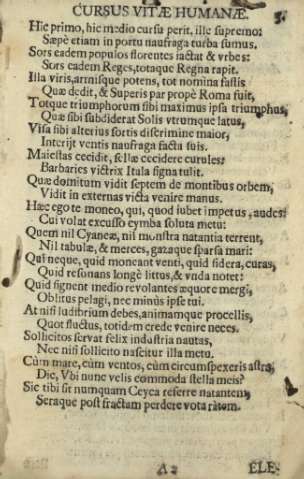 CURSUS VITÆ HUMANÆ. 3.
Hic primo, hic medio cursu perit, ille supremo:
Sæpè etiam in portu naufraga turba sumus.
Sors eadem populos florentes iactat & vrbes:
Sors eadem Reges, totaque Regna rapit.
Illa viris, armisque potens, tot nomina fastis
Quæ dedit, & Superis par propè Roma fuit,
Totque triumphorum sibi maximus ipsa triumphus,
Quæ sibi subdiderat Solis vtrumque latus,
Visa sibi alterius sortis discrimine maior,
Interijt ventis naufraga facta suis.
Maiestas cecidit, sellæ cecidere curules:
Barbaries victrix Itala signa tulit.
Quæ domitum vidit septem de montibus orbem,
Vidit in externas victa venire manus.
Hæc ego te moneo, qui, quod iubet impetus, audes:
Cui volat excusso cymba soluta metu:
Quem nil Cyaneæ, nil monstra natantia terrent,
Nil tabulæ, & merces, gazaque sparsa mari:
Qui neque, quid moneant venti, quid sidera, curas,
Quid resonans longè littus, & vnda notet:
Quid signent medio revolantes æquore mergi,
Oblitus pelagi, nec minùs ipse tui.
At nisi ludibrium debes, animamque procellis,
Quot fluctus, totidem crede venire neces.
Sollicitos servat felix industria nautas,
Nec nisi sollicito nascitur illa metu.
Cùm mare, cùm ventos, cùm circumspexeris astra;
Dic, Vbi nunc velis commoda stella meis?
Sic tibi sit numquam Ceyca referre natantem,
Seraque post fractam perdere vota ratem.
A 2 ELE-